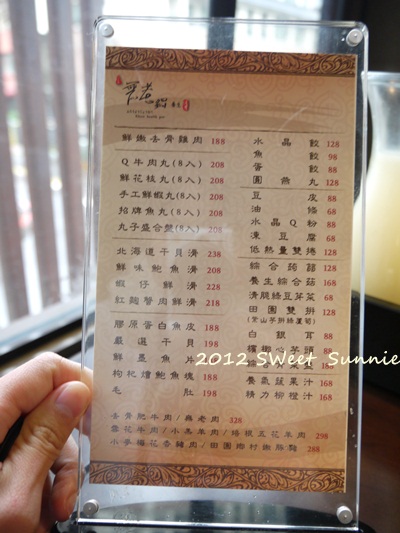 鮮嫩去骨雞肉 188
Q牛肉丸(8入) 208
鮮花枝丸(8入) 208
手工鮮蝦丸(8入) 208
招牌魚丸(8入) 208
丸子盛合盤(8入) 208
北海道干貝滑 238
鮮味鮑魚滑 208
蝦仔鮮滑 228
紅麴蟹肉鮮滑 218
膠原蛋白魚皮 188
嚴選干貝 198
鮮墨魚片 188
枸杞燴鮑魚塊 188
毛肚 198
水晶餃 128
魚餃 98
蛋餃 88
圓燕丸 128
豆皮 88
油條 68
水晶Q粉 88
凍豆腐 68
低熱量雙捲 128
綜合菇 128
養生綜合菇 168
清脆綠豆芽菜 68
田園雙拼 128
白銀耳 88
檳榔心芋頭 88
養氣蔬果汁 168
精力柳橙汁 168
去骨肥牛肉/無老肉 328
雪花牛肉/小羔羊肉/培根五花羊肉 298
小麥梅花香豬肉/田園鄉村嫩豚雞 288
2012 SWeet Sunnie